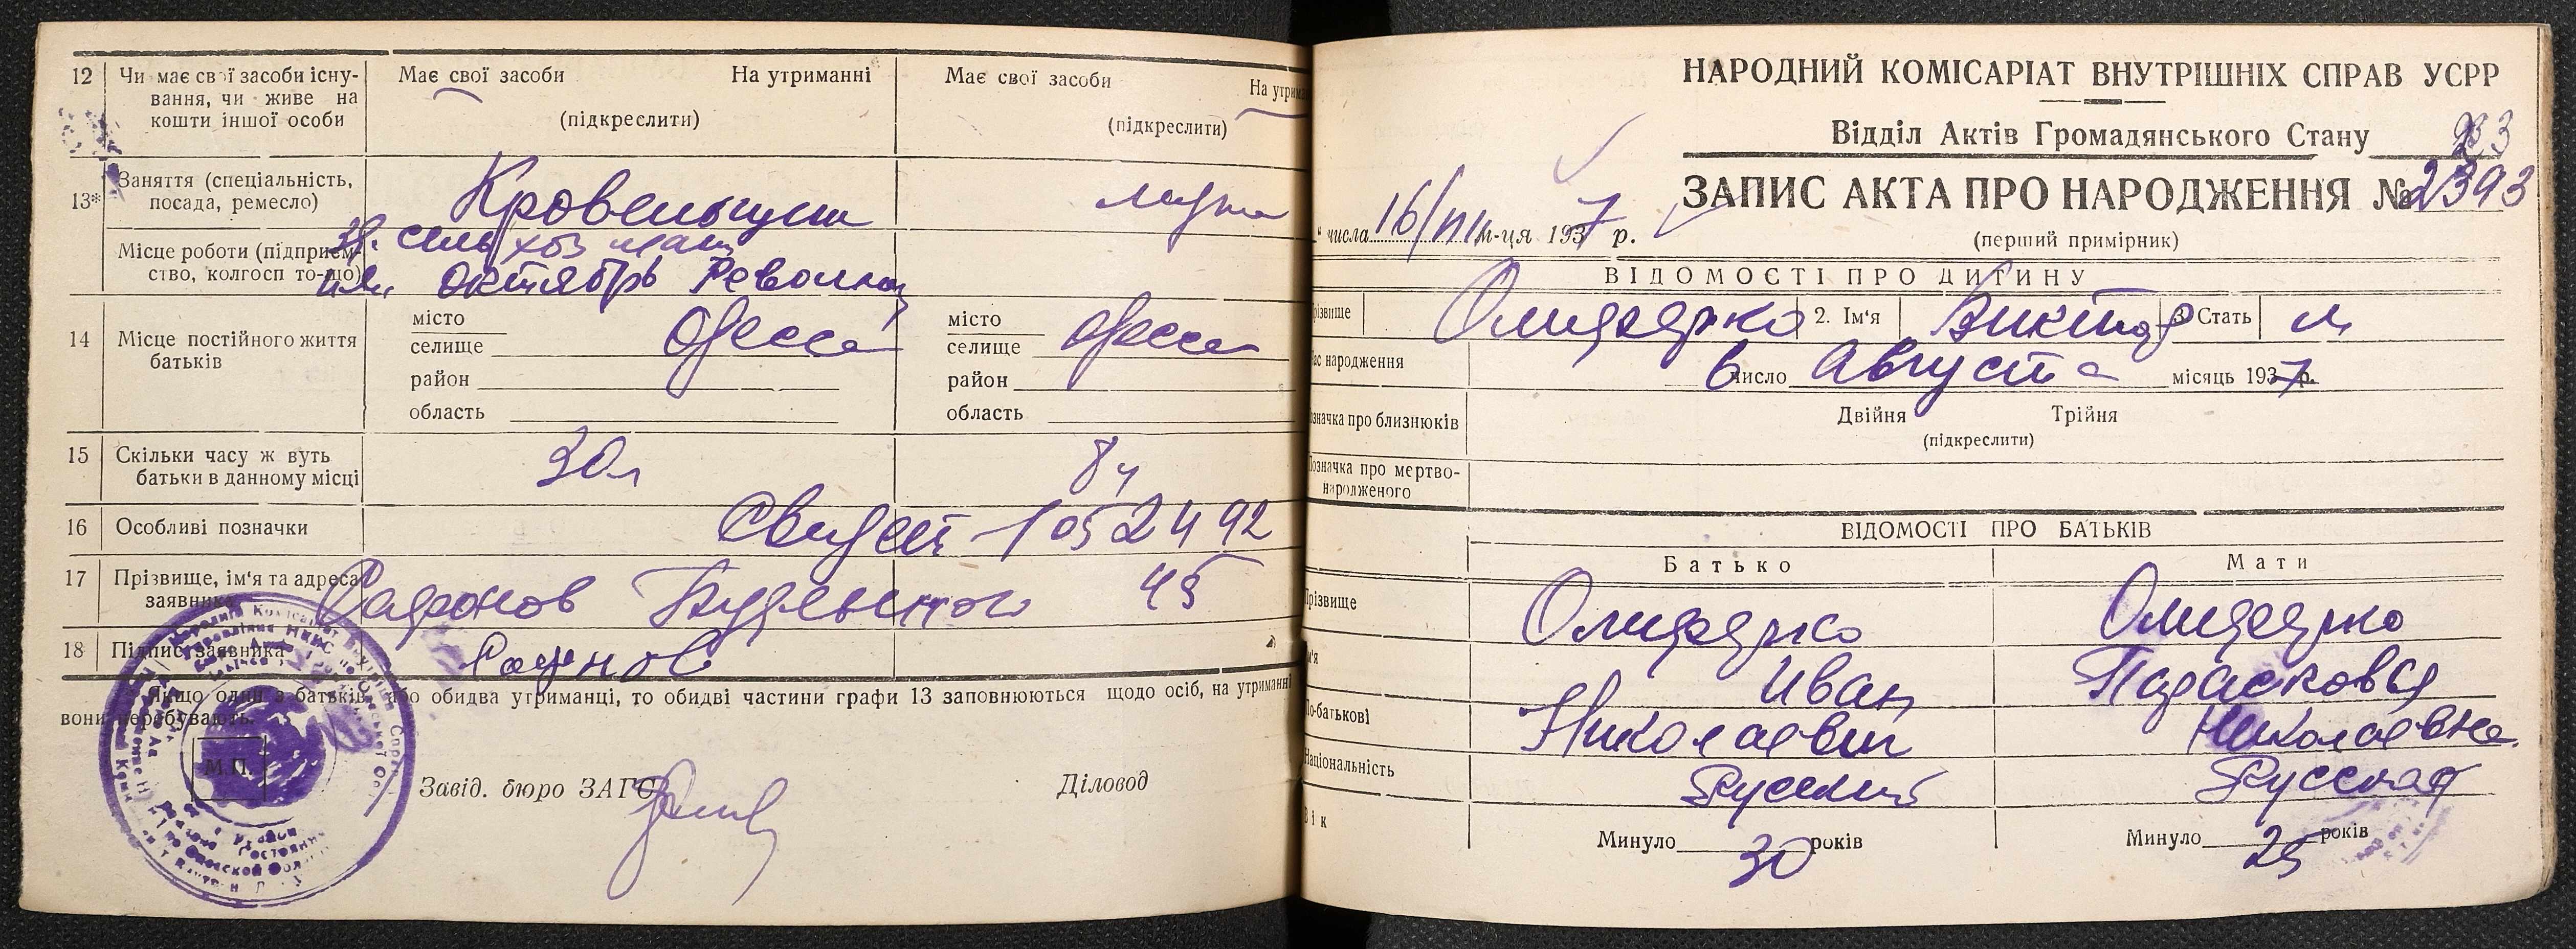 12 Чи має свої засоби існу-
вання, чи живе на
кошти іншої особи
Має свої засоби На утриманні
(підкреслити)
Має свої засоби На утрима
(підкреслити)
13* Заняття (спеціальність,
посада, ремесло)
Кровельщик
Місце роботи (підприєм-
ство, колгосп то-що)
зв. сель хоз маш
им. Октябрь Революц
14 Місце постійного життя
батьків
місто
селище Одесса
район
область
місто
селище Одесса
район
область
15 Скільки часу живуть
батьки в данному місці
30л
16 Особливі позначки
Свидет 1052492
17 Прізвище, ім'я та адреса
заявника
Сафонов 45
18 Підпис заявника
Якщо один з батьків або обидва утриманці, то обидві частини графи 13 заповнюються щодо осіб, на утриманні
вони перебувають.
М.П.
Завід. бюро ЗАГС
Діловод
НАРОДНИЙ КОМІСАРІАТ ВНУТРІШНІХ СПРАВ УСРР
Відділ Актів Громадянського Стану
ЗАПИС АКТА ПРО НАРОДЖЕННЯ № 2393
(перший примірник)
числа 16/VIII м-ця 1937 р.
ВІДОМОСТІ ПРО ДИТИНУ
різвище Олифярко 2. Ім'я Виктор 3. Стать м
ас народження 6 число Августа місяць 1937 р.
означка про близнюків Двійня Трійня
(підкреслити)
Позначка про мертво-
народженого
ВІДОМОСТІ ПРО БАТЬКІВ
Батько Мати
Прізвище Олифярко Олифярко
м'я Иван Парасковья
По-батькові Николаевич Николаевна
Національність Русский Русская
Вік
Минуло 30 років Минуло 25 років